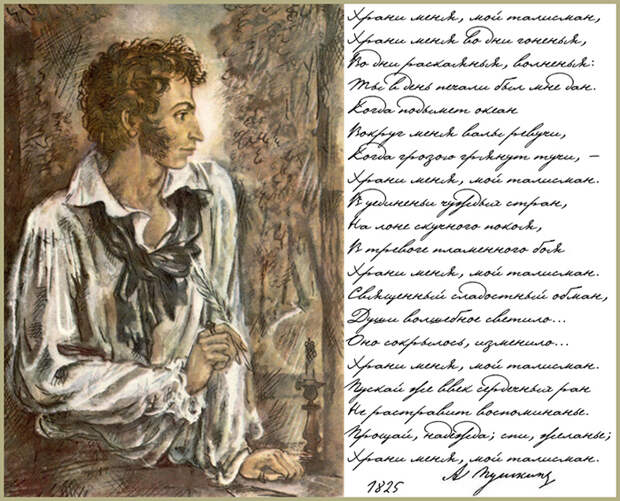 Храни меня, мой талисман,
Храни меня во дни гоненья,
Во дни раскаянья, волненья:
Ты в день печали был мне дан.
Когда подымет океан
Вокруг меня валы ревучи,
Когда грозою грянут тучи, –
Храни меня, мой талисман.
В уединенье чуждых стран,
На лоне скучного покоя,
В тревоге пламенного боя
Храни меня, мой талисман.
Священный сладостный обман,
Души волшебное светило...
Оно сокрылось, изменило...
Храни меня, мой талисман.
Пускай же ввек сердечных ран
Не растравит воспоминанье.
Прощай, надежда; спи, желанье;
Храни меня, мой талисман.
А Пушкинъ
1825